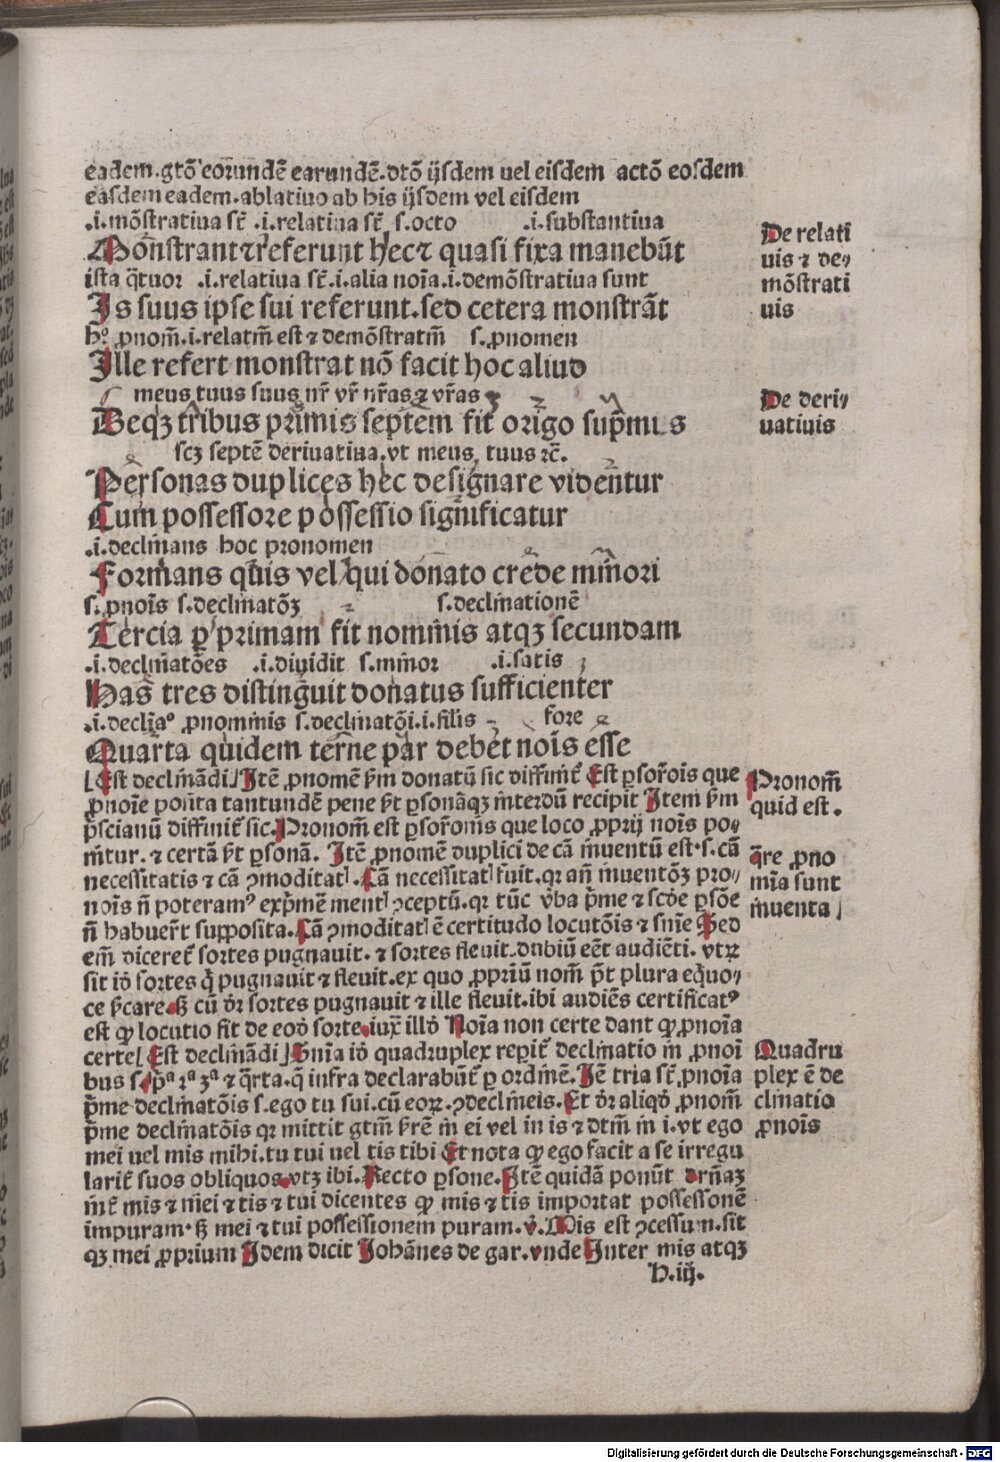 eadem.gtō eorundē earundē.dtō ijsdem uel eisdem actō eosdem
easdem eadem.ablatiuo ab his ijsdem vel eisdem
.i.mōstratiua st̄ .i.relatiua st̄ s.octo .i.substantiua
Monstrant ⁊ referunt hec ⁊ quasi fixa manebūt
De relati
uis ⁊ de⸗
mōstrati
uis
ista q̄tuor .i.relatiua st̄.i.alia noīa.i.demōstratiua sunt
Is suus ipse sui referunt.sed cetera monstrāt
hº ꝓnom̄.i.relatm̄ est ⁊ demōstratm̄ s.ꝓnomen
Ille refert monstrat nō facit hoc aliud
meus tuus suus nr̄ vr̄ nr̄as ⁊ vr̄as
Deqꝫ tribus primis septem fit origo sup̄mis
De deri⸗
uatiuis
scꝫ septē deriuatiua.vt meus, tuus ⁊c̄.
Personas duplices hec designare videntur
Cum possessore possessio significatur
.i.declinans hoc pronomen
Formans quis vel qui donato crede minori
s.ꝓnoīs s.declinatōꝫ s.declinationē
Tercia ꝑ primam fit nominis atqꝫ secundam
.i.declinatōes .i.diuidit s.minor .i.satis
Has tres distinguit donatus sufficienter
.i.declīaº ꝓnominis s.declinatōi.i.silis fore
Quarta quidem terne par debet noīs esse
Est declinādi Itē ꝓnomē ẜm donatū sic diffinit̄ Est ꝑs oroīs que
ꝓnoīe posita tantundē pene ẜt ꝑsonāqꝫ interdū recipit Item ẜm
p̄scianū diffinit̄ sic. Pronom̄ est ꝑs oroīs que loco ꝓprij noīs po⸗
nitur. ⁊ certā ẜt ꝑsonā. Itē ꝓnomē duplici de cā inuentū est.s.cā
Pronom̄
quid est.
q̄re ꝓno
mīa sunt
inuenta
necessitatis ⁊ cā ꝯmoditatꝭ. Cā necessitatꝭ fuit.qꝛ an̄ inuentōꝫ pro⸗
noīs n̄ poteramꝰ exp̄mē mentꝭ ꝯceptū.qꝛ tūc v̄ba p̄me ⁊ scd̄e ꝑsōe
n̄ habuer̄t supposita. Cā ꝯmoditatꝭ ē certitudo locutōis ⁊ sn̄ie Sed
em̄ diceret̄ sortes pugnauit. ⁊ sortes fleuit.dubiū eēt audiēti. vtꝝ
sit iō sortes q̄ pugnauit ⁊ fleuit.ex quo ꝓpriū nom̄ p̄t plura equo⸗
ce ẜcare. ẞ cū or̄ sortes pugnauit ⁊ ille fleuit.ibi audiēs certificatꝰ
est ꝙ locutio fit de eodē sorte.iux̄ illō Noīa non certe dant ꝙ ꝓnoīa
certe Est declinādi Sn̄ia iō quadruplex reperit̄ declinatio in ꝓnoī
bus s.p̄ª 2ª 3ª ⁊ q̄rta.q̄ infra declarabūt̄ ꝑ ordinē. Iē tria st̄ ꝓnoīa
Quadru
plex ē de
clinatio
ꝓnoīs
p̄me declinatōis s.ego tu sui.cū eoꝝ ꝯdeclineis. Et or̄ aliqō ꝓnom̄
p̄me declinatōis qꝛ mittit gtm̄ ẜrē in ei vel in is ⁊ dtm̄ in i.vt ego
mei uel mis mihi.tu tui uel tis tibi Et nota ꝙ ego facit a se irregu
larit̄ suos obliquos.vtꝫ ibi. Recto ꝑsone. Itē quidā ponūt drn̄aꝫ
int̄ mis ⁊ mei ⁊ tis ⁊ tui dicentes ꝙ mis ⁊ tis importat possessonē
impuram. ẞ mei ⁊ tui possessionem puram. v̄. Mis est ꝯcessum.sit
qꝫ mei ꝓprium Idem dicit Johānes de gar.vnde Inter mis atqꝫ
h.iij.
Digitalisierung gefördert durch die Deutsche Forschungsgemeinschaft - DFG